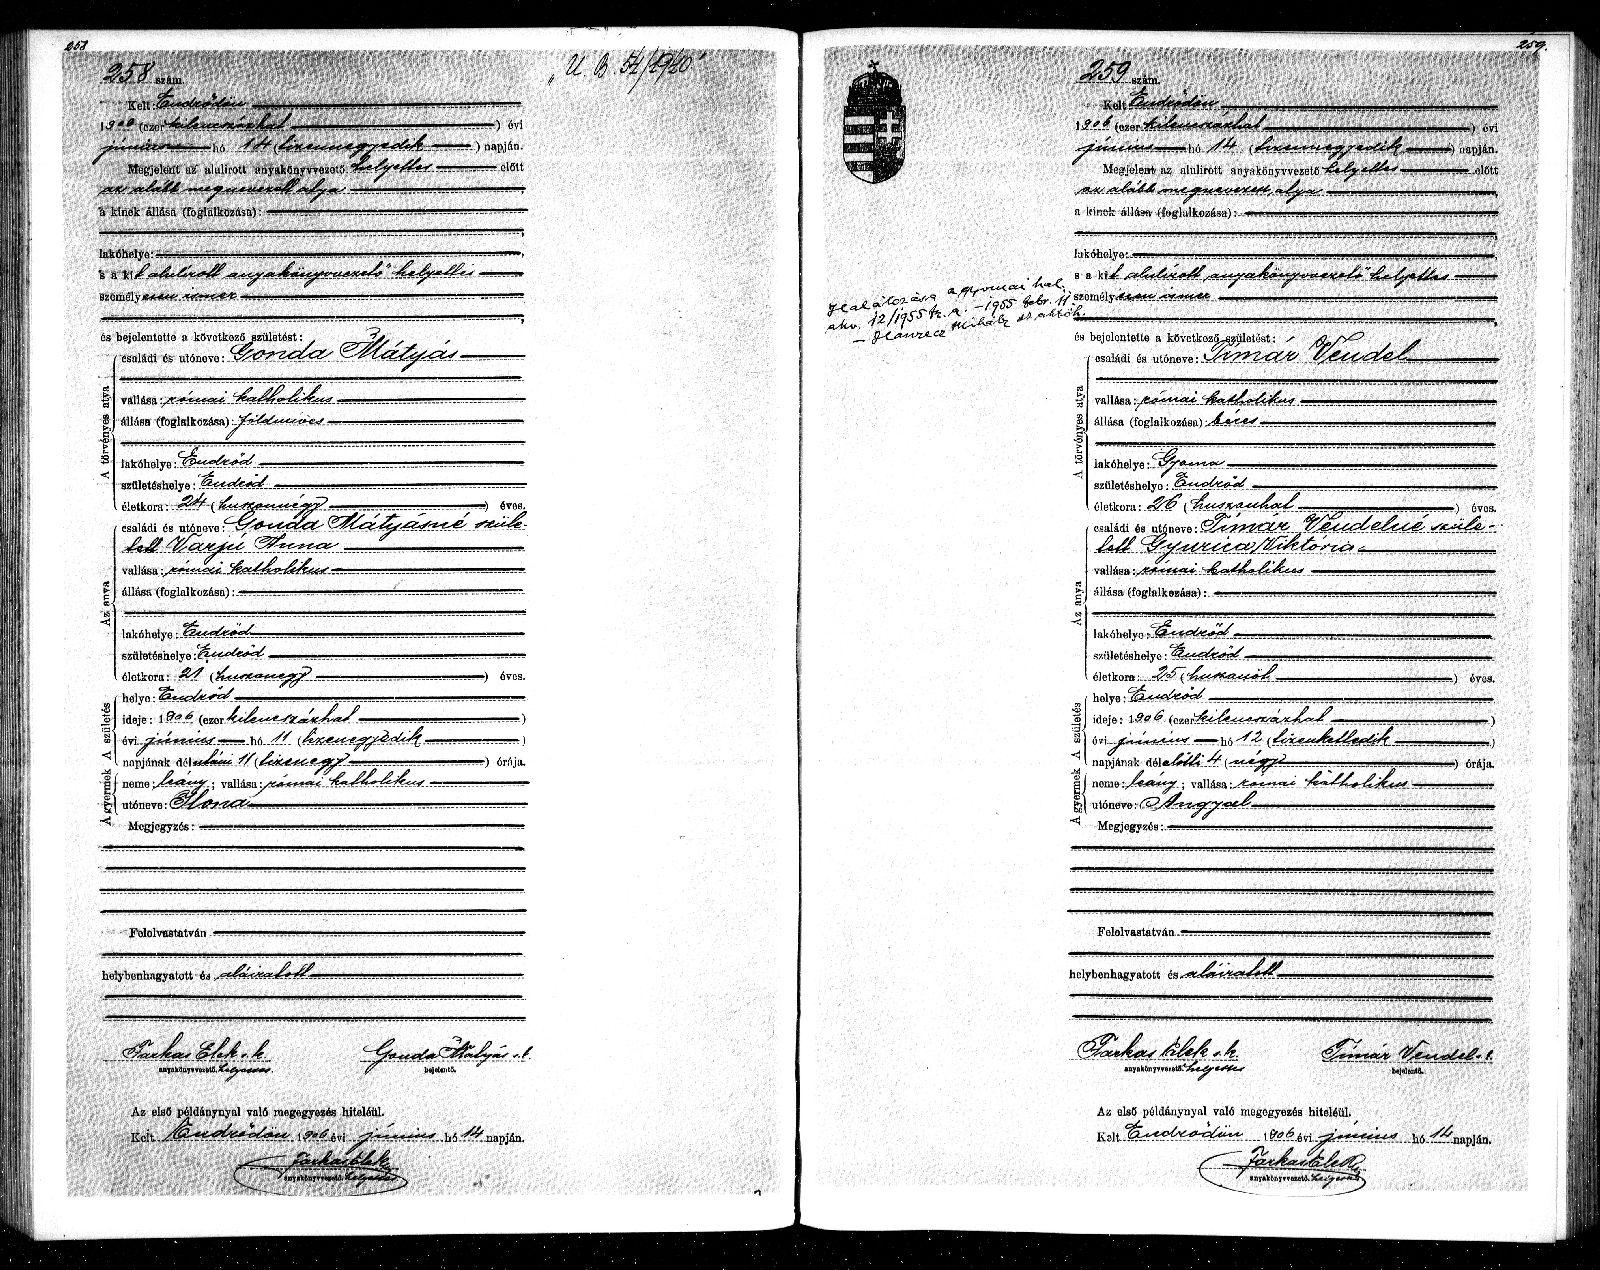 258
258 szám.
„U. B. 54/1940”
Kelt Endrődön
1906 (ezer kilenczázhat) évi
június hó 14 (tizennegyedik) napján.
Megjelent az alulirott anyakönyvvezető helyettes előtt
az alább megnevezett atya
a kinek állása (foglalkozása):
lakóhelye:
s a kit alulirott anyakönyvvezető helyettes
személyesen ismer
és bejelentette a következő születést:
A törvényes atya
családi és utóneve: Gonda Mátyás
vallása: római katholikus
állása (foglalkozása): földmíves
lakóhelye: Endrőd
születéshelye: Endrőd
életkora: 24 (huszonnégy) éves.
Az anya
családi és utóneve: Gonda Mátyásné szüle-
tett Varjú Anna
vallása: római katholikus
állása (foglalkozása):
lakóhelye: Endrőd
születéshelye: Endrőd
életkora: 21 (huszonegy) éves.
A születés
helye: Endrőd
ideje: 1906 (ezer kilenczázhat)
évi június hó 11 (tizenegyedik)
napjának délutáni 11 (tizenegy) órája.
A gyermek
neme: leány; vallása: római katholikus
utóneve: Ilona
Megjegyzés:
Felolvastatván
helybenhagyatott és aláiratott
Farkas Elek s. k. Gonda Mátyás s. k.
anyakönyvvezető. helyettes bejelentő.
Az első példánynyal való megegyezés hiteléül.
Kelt Endrődön 1906 évi június hó 14 napján.
Farkas Elek
anyakönyvvezető. helyettes
259.
259 szám.
Kelt Endrődön
1906 (ezer kilenczázhat) évi
június hó 14 (tizennegyedik) napján.
Megjelent az alulirott anyakönyvvezető helyettes előtt
az alább megnevezett atya
a kinek állása (foglalkozása):
lakóhelye:
s a kit alulirott anyakönyvvezető helyettes
személyesen ismer
Halálozása a gyomai hal.
akv. 12/1955 fsz. a. – 1955 febr. 11.
– Hanrecz Mihály
és bejelentette a következő születést:
A törvényes atya
családi és utóneve: Tímár Vendel
vallása: római katholikus
állása (foglalkozása): béres
lakóhelye: Gyoma
születéshelye: Endrőd
életkora: 26 (huszonhat) éves.
Az anya
családi és utóneve: Tímár Vendelné szüle-
tett Gyurica Viktória
vallása: római katholikus
állása (foglalkozása):
lakóhelye: Endrőd
születéshelye: Endrőd
életkora: 25 (huszonöt) éves.
A születés
helye: Endrőd
ideje: 1906 (ezer kilenczázhat)
évi június hó 12 (tizenkettedik)
napjának délelőtti 4 (négy) órája.
A gyermek
neme: leány; vallása: római katholikus
utóneve: Angyal
Megjegyzés:
Felolvastatván
helybenhagyatott és aláiratott
Farkas Elek s. k. Tímár Vendel s. k.
anyakönyvvezető. helyettes bejelentő.
Az első példánynyal való megegyezés hiteléül.
Kelt Endrődön 1906 évi június hó 14 napján.
Farkas Elek
anyakönyvvezető. helyettes